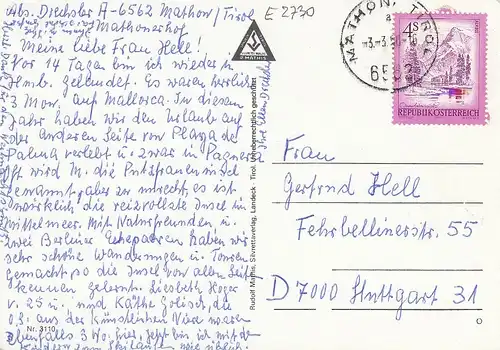 Abs. Drechsler A-6562 Mathon/Tirol
Mathonerhof
Meine liebe Frau Hell!
Vor 14 Tagen bin ich wieder in
Hmb. gelandet. Es waren herrliche
3 Mon. auf Mallorca. In diesem
Jahr haben wir den Urlaub auf
der anderen Seite von Playa de
Palma verlebt u. zwar in Paguera
Oft wird M. die Putzfraueninsel
genannt, aber zu unrecht, es ist
wirklich die reizvollste Insel im
Mittelmeer. Mit Naturfreunden u.
zwei Berliner Ehepaaren haben wir
sehr schöne Wanderungen u. Touren
gemacht so die Insel von allen Seiten
kennen gelernt. Liesbeth Hoger
v. 25 u. und Käthe Golisch, die
o.S. aus der Künstlerin waren
Ebenfalls 3 Wo. hier, jetzt bin ich mit den
Kindern zum Skilaufen wie üblich.
E 2730
R. MATHIS
Rudolf Mathis, Silvrettaverlag, Landeck - Tirol. Urheberrechtlich geschützt
Nr. 3110
MATHON, TIROL
-3.-3.
6562
4S
REPUBLIK ÖSTERREICH
Frau
Gertrud Hell
Fehrbellinerstr. 55
D 7000 Stuttgart 31